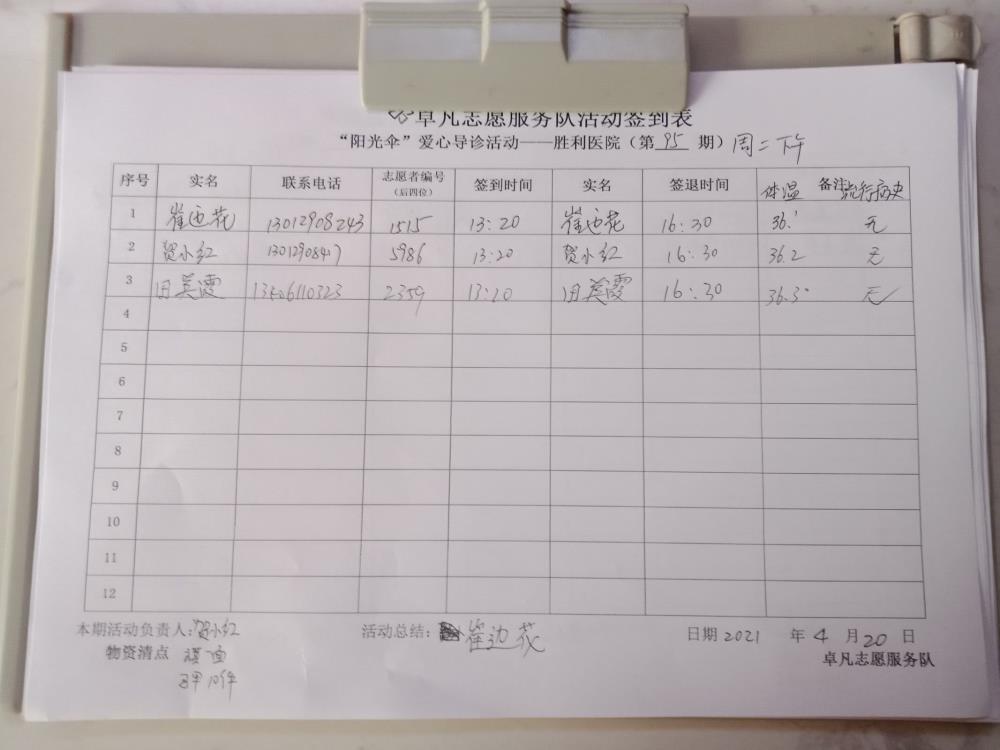 卓凡志愿服务队活动签到表
“阳光伞”爱心导诊活动——胜利医院（第 95 期）周二下午
序号 实名 联系电话 志愿者编号（后四位） 签到时间 实名 签退时间 体温 备注 流行病史
1 崔边花 13012908243 1515 13:20 崔边花 16:30 36.1 无
2 贺小红 5986 13:20 贺小红 16:30 36.2 无
3 13406110323 2359 13:20 16:30 36.3° 无
4
5
6
7
8
9
10
11
12
本期活动负责人：贺小红 活动总结： 崔边花 日期 2021 年 4 月 20 日
物资清点 卓凡志愿服务队
10件